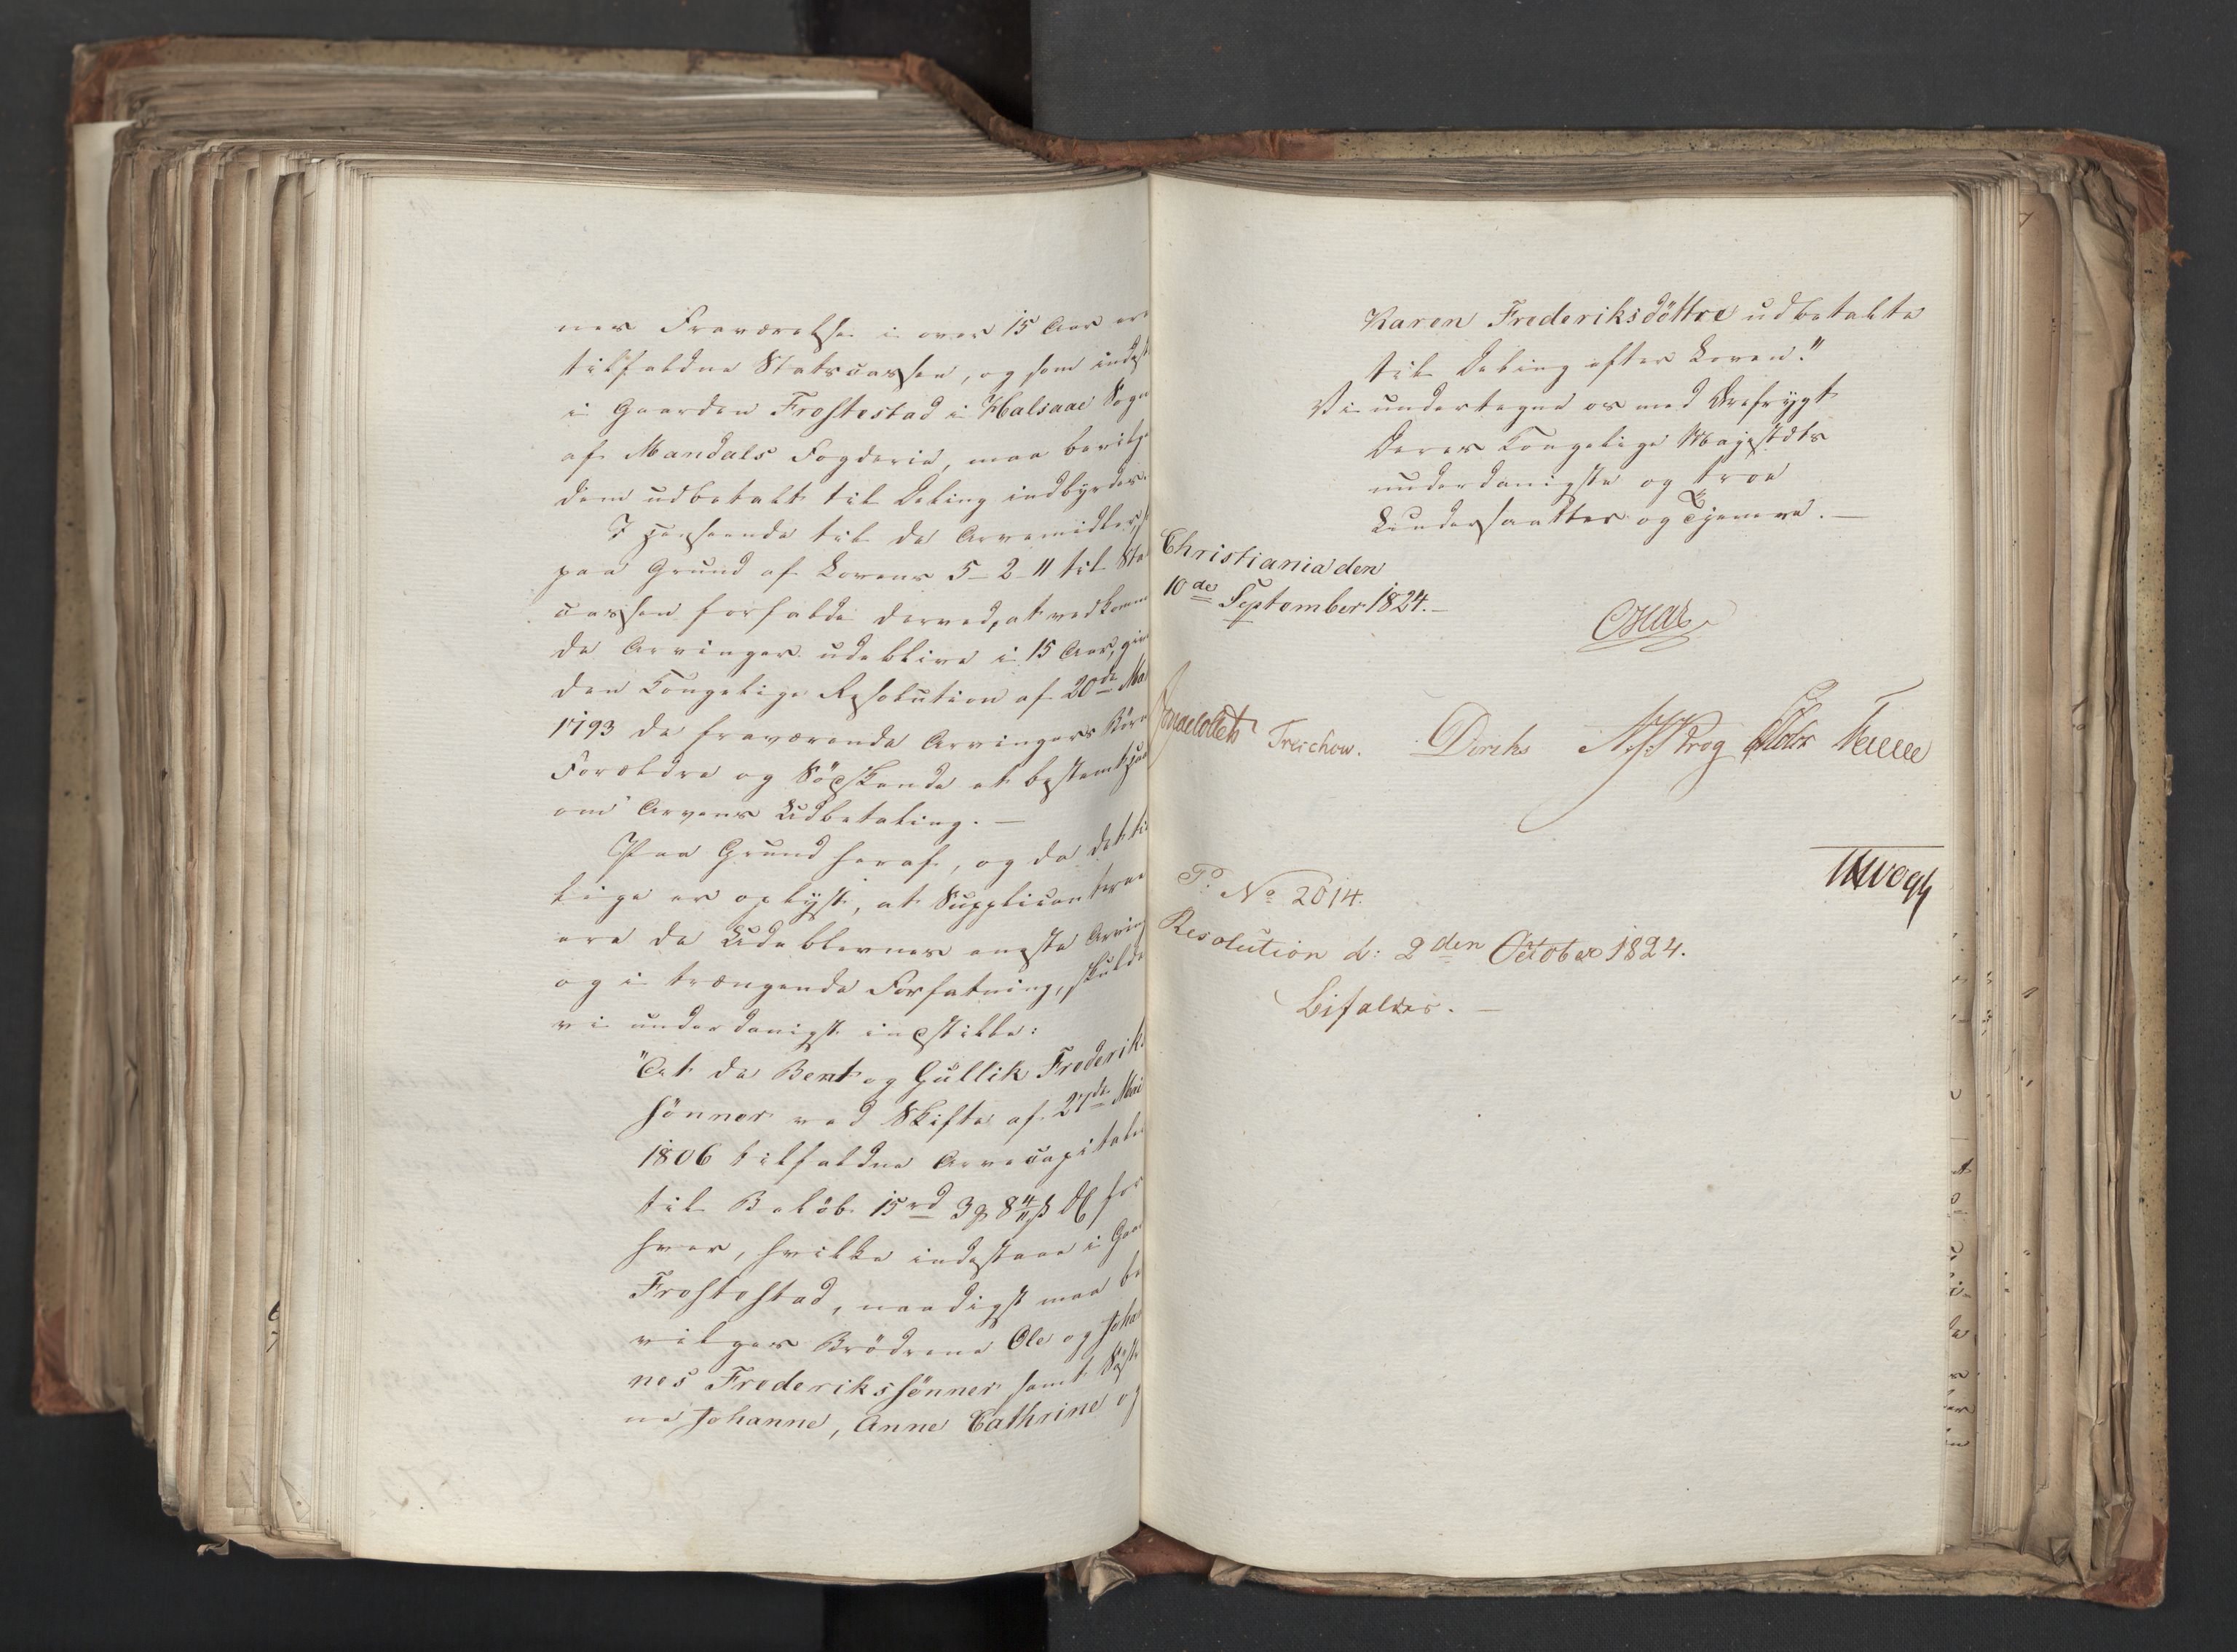 nes Fraværelse i over 15 Aar ere
tilfaldne Statscassen, og som indest
i Gaarden Frostestad i Halsaae Sogn
af Mandals Fogderie, maa bevilge
dem udbetalt til Deling indbyrdes.
I Henseende til de Arvemidler,
paa Grund af Lovens 5-2-11 til Sta
cassen forfalde derved, at vedkomm
de Arvinger udeblive i 15 Aar, giv
den Kongelige Resolution af 20de Ma
1793 de fraværende Arvingers Børn
Forældre og Søskende et bestemt Haab
om Arvens Udbetaling. —
Paa Grund heraf, og da det til
lige er oplyst, at Supplicanterne
ere de Udeblevnes eneste Arving
og i trængende Forfatning, skulde
vi underdanigst indstille:
"At de Bent og Gullik Frederiks
sønner ved Skifte af 27de Mai
1806 tilfaldne Arvecapitaler
til Beløb 15rd 3 8 4/11 ß for
hver, hvilke indestaae i Gaar
Frostestad, naadigst maa be
vilges Brødrene Ole og Johan
nes Frederikssønner samt Søstr
ne Johanne, Anne Cathrine og
Karen Frederiksdöttre udbetalte
til Deling efter Loven."
Vi undertegne os med Ærefrygt
Deres Kongelige Majestæts
underdanigste og troe
Undersaatter og Tjenere. —
Christiania den
10de September 1824.—
Jonas Collett Treschow. Diriks Krog Fasting
P: No 2014.
Resolution d: 2den October 1824.
Bifaldes. —